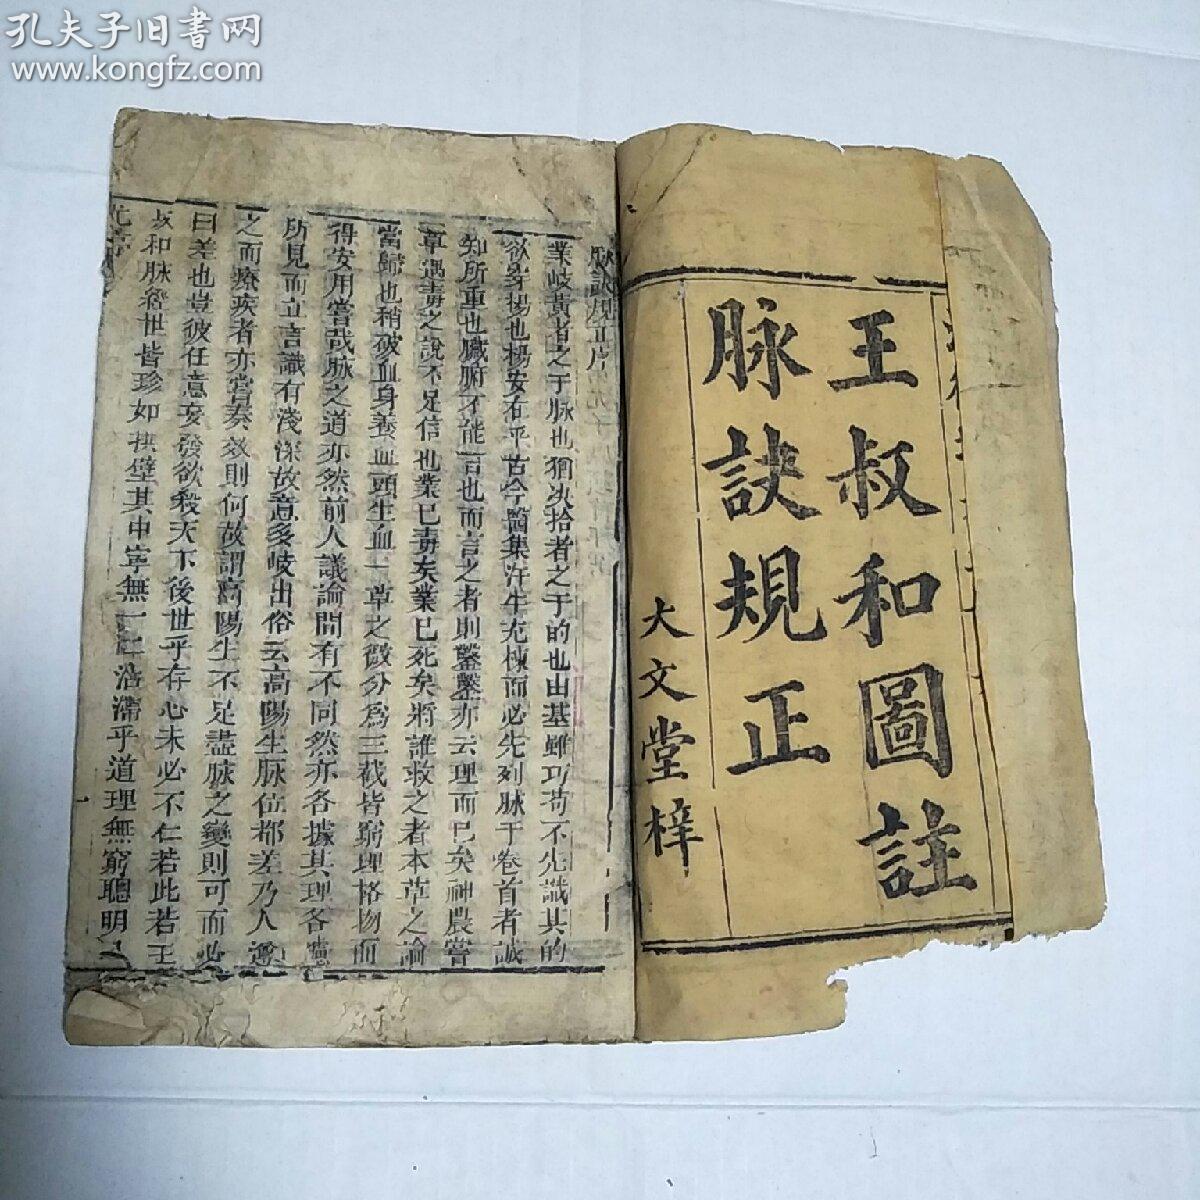 孔夫子旧书网
www.kongfz.com
王叔和圖註
脉訣規正
大文堂梓
脉訣規正序
業岐黃者之于脉也猶决拾者之于的也由基雖巧苟不先識其的
欲穿楊也楊安在乎古今醫集汗牛充棟而必先列脉于卷首者誠
知所重也臟腑不能言也而言之者則鑿鑿亦云理而已矣神農嘗
草遇毒之說不足信也業已毒矣業已死矣將誰救之者本草之論
當歸也稍破血身養血頭生血一草之微分爲三截皆窮理格物而
得安用嘗哉脉之道亦然前人議論間有不同然亦各據其理各應
所見而立言識有淺深故意多岐出俗云高陽生脉位都差乃人遵
之而療疾者亦嘗奏效則何故謂高陽生不足盡脉之變則可而必
曰差也豈彼任意妄發欲殺天下後世乎存心未必不仁若此若王
叔和脉訣世皆珍如拱璧其中寧無一二浩滯乎道理無窮聰明